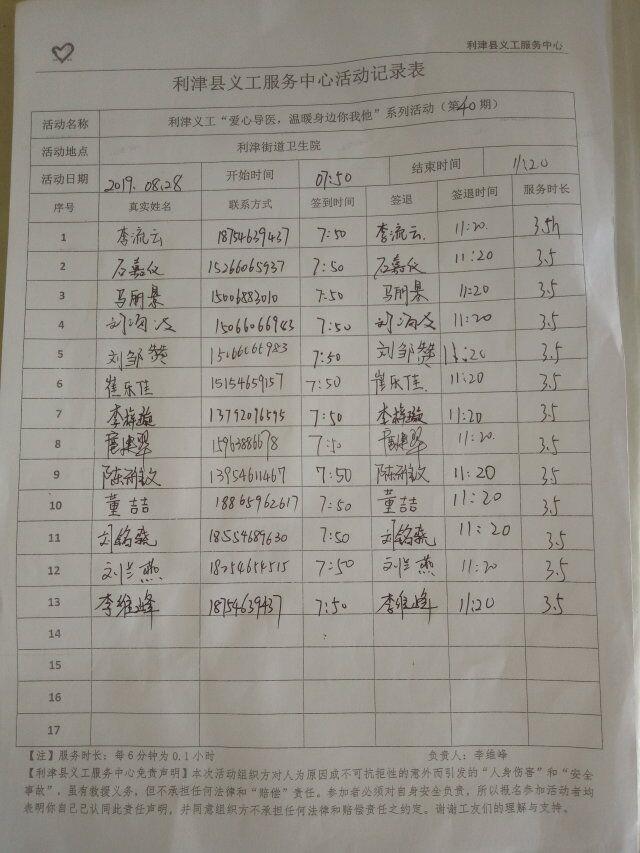 利津县义工服务中心
利津县义工服务中心活动记录表
活动名称 利津义工“爱心导医，温暖身边你我他”系列活动（第40期）
活动地点 利津街道卫生院
活动日期 2019.08.28 开始时间 07:50 结束时间 11:20
序号 真实姓名 联系方式 签到时间 签退 签退时间 服务时长
1 李流云 18754639437 7:50 李流云. 11:20. 3.5h
2 石嘉仪 15266065937 7:50 石嘉仪 11:20 3.5
3 马丽景 15006883010 7:50 马丽景 11:20 3.5
4 刘海波 15066066943 7:50 刘海波 11:20 3.5
5 刘邹赞 7:50 刘邹赞 11:20 3.5
6 崔乐佳 15154659157 7:50 崔乐佳. 11:20 3.5
7 李梓璇 13792076595 7:50 李梓璇 11:20 3.5
8 15963886678 7:50 11:20. 3.5
9 13954611467 7:50 11:20 3.5
10 董喆 18865962617 7:50 董喆 11:20 3.5
11 刘铭晓 18554689630 7:50 刘铭晓 11:20 3.5
12 刘兰燕 18254654515 7:50 刘兰燕 11:20 3.5
13 李维峰 18754639437 7:50 李维峰 11:20 3.5
14
15
16
17
【注】服务时长：每6分钟为0.1小时 负责人：李维峰
【利津县义工服务中心免责声明】本次活动组织方对人为原因或不可抗拒性的意外而引发的“人身伤害”和“安全
事故”，虽有救援义务，但不承担任何法律和“赔偿”责任。参加者必须对自身安全负责，所以报名参加活动者均
表明你自己已认同此责任声明，并同意组织方不承担任何法律和赔偿责任之约定。谢谢工友们的理解与支持。